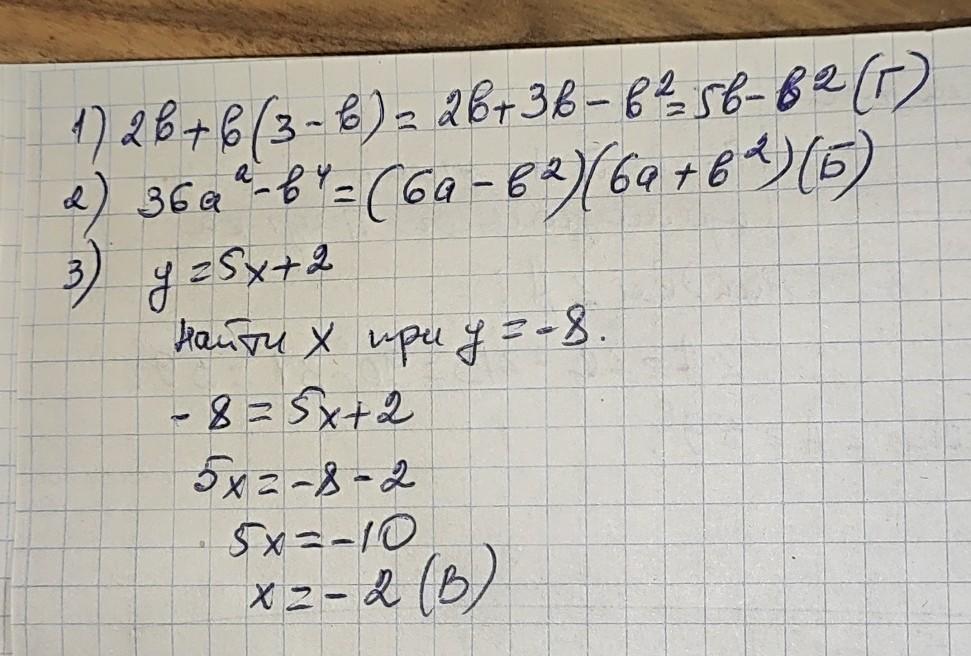 1) 2в+в(3-в)= 2в+3в-в²=5в-в2 (Г)
2) 36а²-в⁴=(6а-в²)(6а+в²)(Б)
3) y=5x+2
Найти x при y=-8.
-8=5x+2
5x=-8-2
5x=-10
x=-2 (В)